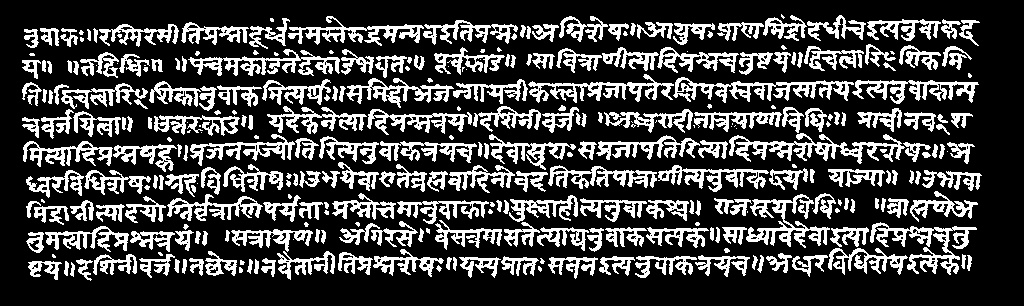 नुवाकः॥रश्मिरसीतिप्रश्नादूर्ध्वंनमस्तेरुद्रमन्यवइतिप्रश्नः॥अग्निशेषः॥आयुषःप्राणमिंद्रोदधीचइत्यनुवाकद्व
यं॥ ॥तद्विधिः॥ ॥पंचमकांडंतेद्वेकांडेभयतः॥ पूर्वकांडं॥ ॥सावित्राणीत्यादिप्रश्नचतुष्टयं॥द्विचत्वारिꣳशिकमि
ति॥द्विचत्वारिꣳशिकानुवाकमित्यर्थः॥समिद्दोअंजन्गायत्रीकस्त्वाप्रजापतेरक्षिपवस्ववाजसातयइत्यनुवाकान्पं
चवर्जयित्वा॥ ॥उत्तरकांडं॥ यदेकेनेत्यादिप्रश्नत्रयं॥दशिनीवर्जं॥ ॥अध्वरादीनांत्रयाणांविधिः॥ प्राचीनवꣳश
मित्यादिप्रश्नषट्कं॥प्रजननंज्योतिरित्यनुवाकत्रयंच॥देवासुराःसप्रजापतिरित्यादिप्रश्नशेषोध्वरशेषः॥अ
ध्वरविधिशेषः॥ग्रहविधिशेषः॥उभयेवाएतेब्रह्मवादिनोवदंतिकतिपात्राणीत्यनुवाकद्वयं॥ याज्या॥ ॥उभावा
मिंद्राग्नीत्यादयोग्निर्वृत्राणिपर्यंताःप्रश्नोत्तमानुवाकाः॥युक्ष्वाहीत्यनुवाकश्च॥ राजसूयविधिः॥ ॥ब्राह्मणेअ
नुमत्यादिप्रश्नत्रयं॥ ॥सत्रायणं॥ अंगिरसोवैसत्रमासतेत्याद्यनुवाकसप्तकं॥साध्यावैदेवाइत्यादिप्रश्नचतु
ष्टयं॥दशिनीवर्जं॥तच्छेषः॥नवैतानीतिप्रश्नशेषः॥यस्यप्रातःसवनइत्यनुवाकत्रयंच॥अध्वरविधिशेषइत्येके॥